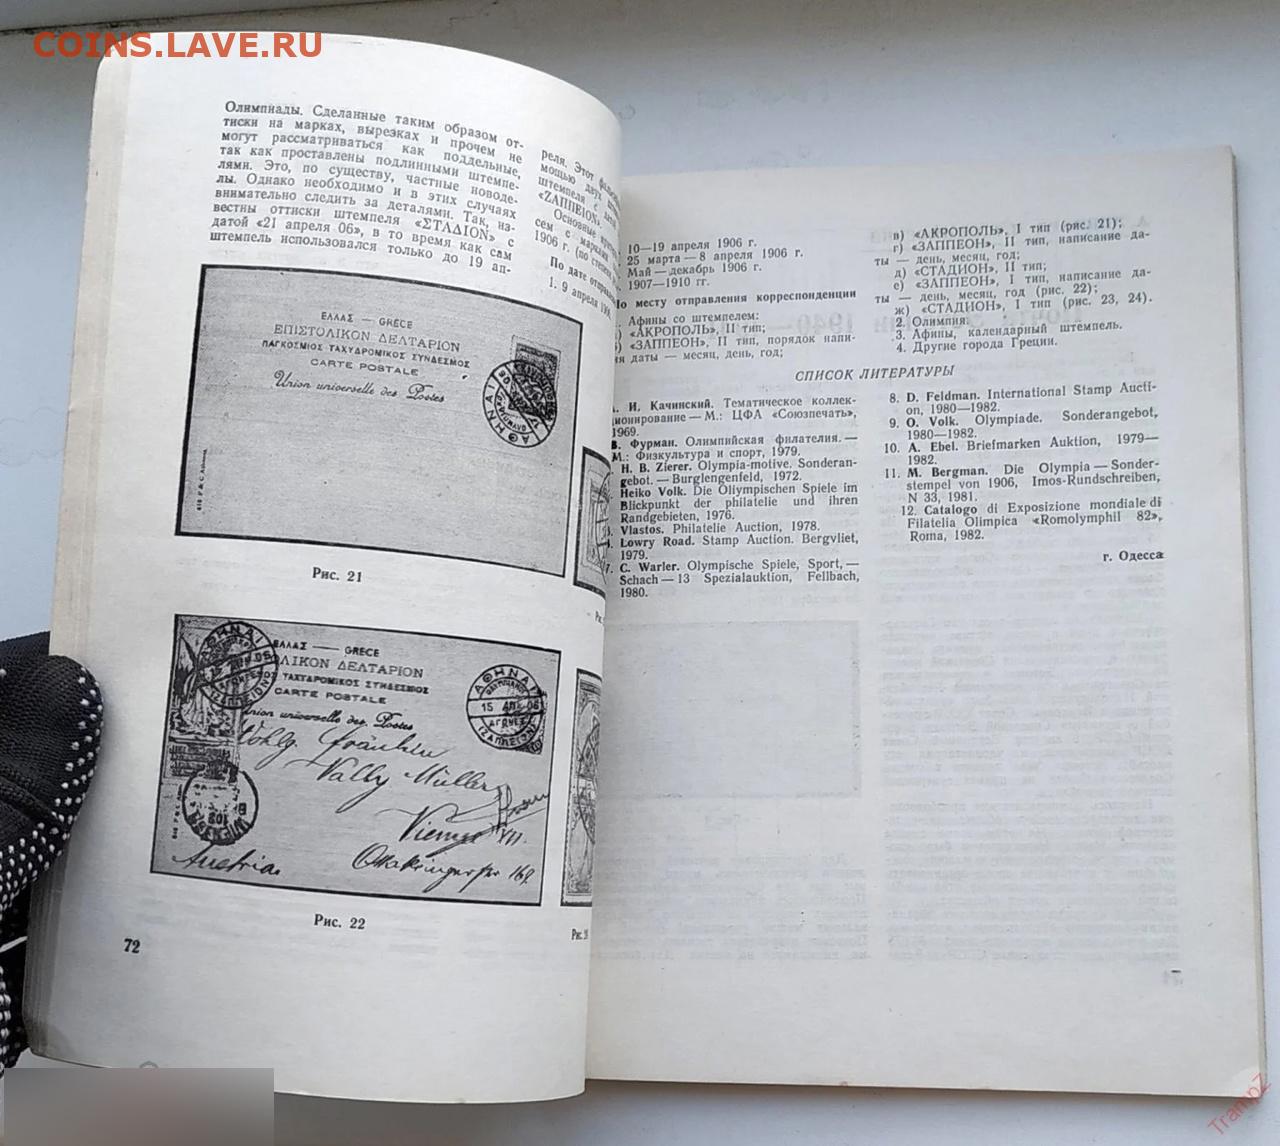 COINS.LAVE.RU
Олимпиады. Сделанные таким образом от-
тиски на марках, вырезках и прочем не
могут рассматриваться как поддельные,
так как проставлены подлинными штемпе-
лями. Это, по существу, частные новоде-
лы. Однако необходимо и в этих случаях
внимательно следить за деталями. Так, из-
вестны оттиски штемпеля «ΣΤΑΔΙΟΝ» с
датой «21 апреля 06», в то время как сам
штемпель использовался только до 19 ап-
реля. Этот
мощью двух
штемпеля с
«ZAППEION»
Основные
сем с марками
1906 г. (по степени
По дате отправления
1. 9 апреля 1906
ΕΛΛΑΣ — GRÈCE
ΕΠΙΣΤΟΛΙΚΟΝ ΔΕΛΤΑΡΙΟΝ
ΠΑΓΚΟΣΜΙΟΣ ΤΑΧΥΔΡΟΜΙΚΟΣ ΣΥΝΔΕΣΜΟΣ
CARTE POSTALE
Union universelle des Postes
ΑΘΗΝΑΙ
Рис. 21
ΑΘΗΝΑΙ
ΕΛΛΑΣ — GRÈCE
ΛΙΚΟΝ ΔΕΛΤΑΡΙΟΝ
ΤΑΧΥΔΡΟΜΙΚΟΣ ΣΥΝΔΕΣΜΟΣ
CARTE POSTALE
Union universelle des Postes
ΑΘΗΝΑΙ
15 ΑΠΡ 06
ΑΓΩΝΕΣ
Wohlg. Fräulein
Vally Müller
Vienne
VII.
Ottakringerstr 169.
Austria.
Рис. 22
72
10—19 апреля 1906 г.
25 марта — 8 апреля 1906 г.
Май — декабрь 1906 г.
1907—1910 гг.
По месту отправления корреспонденции
Афины со штемпелем:
«АКРОПОЛЬ», II тип;
«ЗАППЕОН», II тип, порядок напи-
ния даты — месяц, день, год;
в) «АКРОПОЛЬ», I тип (рис. 21);
г) «ЗАППЕОН», II тип, написание да-
ты — день, месяц, год;
д) «СТАДИОН», II тип;
е) «ЗАППЕОН», I тип, написание да-
ты — день, месяц, год (рис. 22);
ж) «СТАДИОН», I тип (рис. 23, 24).
2. Олимпия.
3. Афины, календарный штемпель.
4. Другие города Греции.
СПИСОК ЛИТЕРАТУРЫ
А. И. Качинский. Тематическое коллек-
ционирование — М.: ЦФА «Союзпечать»,
1969.
В. Фурман. Олимпийская филателия. —
М.: Физкультура и спорт, 1979.
H. B. Zierer. Olympia-motive. Sonderan-
gebot. — Burglengenfeld, 1972.
Heiko Volk. Die Oliympischen Spiele im
Blickpunkt der philatelie und ihren
Randgebieten, 1976.
Vlastos. Philatelie Auction, 1978.
Lowry Road. Stamp Auction. Bergvliet,
1979.
7. C. Warler. Olympische Spiele, Sport, —
Schach — 13 Spezialauktion, Fellbach,
1980.
8. D. Feldman. International Stamp Aucti-
on, 1980—1982.
9. O. Volk. Olympiade. Sonderangebot,
1980—1982.
10. A. Ebel. Briefmarken Auktion, 1979—
1982.
11. M. Bergman. Die Olympia — Sonder-
stempel von 1906, Imos-Rundschreiben,
N 33, 1981.
12. Catalogo di Exposizione mondiale di
Filatelia Olimpica «Romolymphil 82»,
Roma, 1982.
г. Одесса
TrampZ